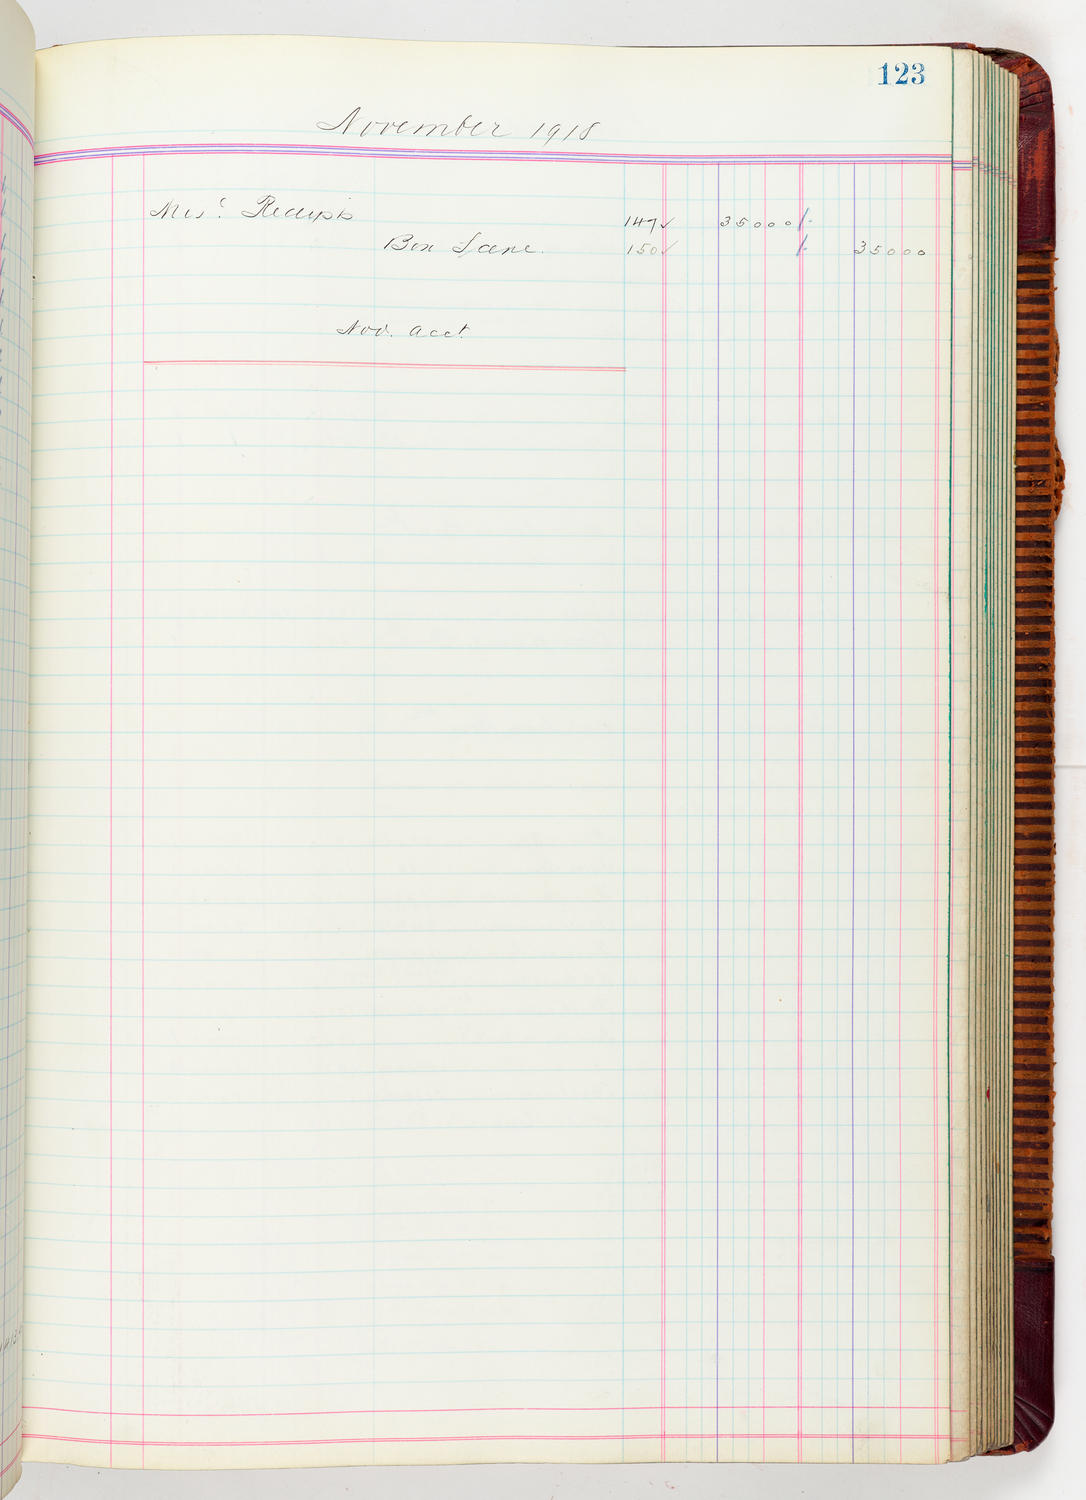 123
November 1918
Mis. Receipts 147✓ 35000
Box Lane. 150✓ 35000
Nov. Acct.